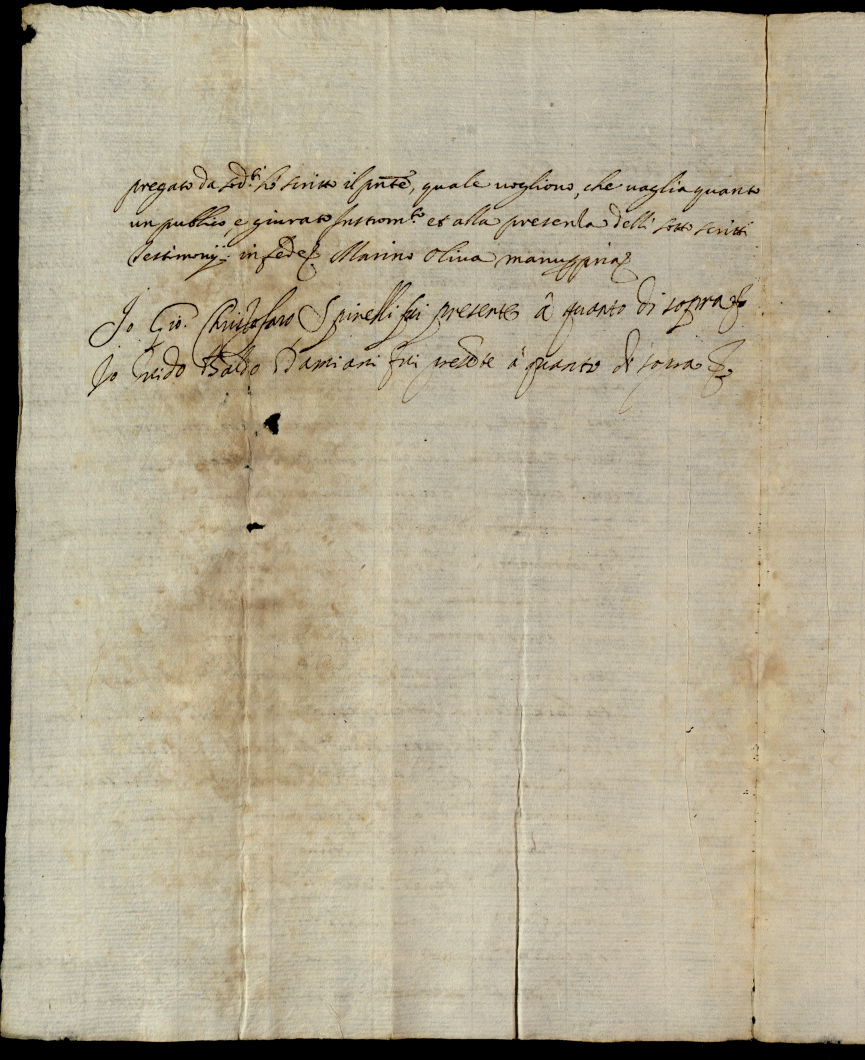 pregato da sod.ti hò scritto il pnte, quale vogliono, che vaglia quanto
un publico, e giurato Instrom.to et alla presenza delli sotto scritti
Testimonij: in fede Marino Oliva manuppria
Io Gio. Christofaro Spinelli fui presente à quanto di sopra
Io Guido Baldo Damiani fui presēte à quanto di sopra